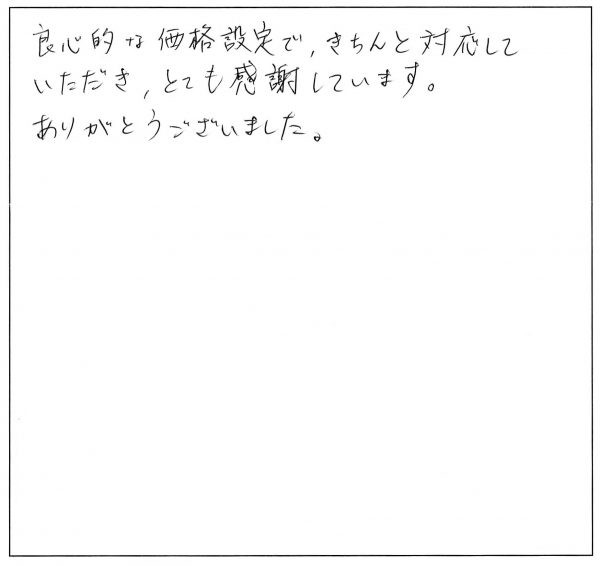 良心的な価格設定で,きちんと対応して
いただき,とても感謝しています。
ありがとうございました。